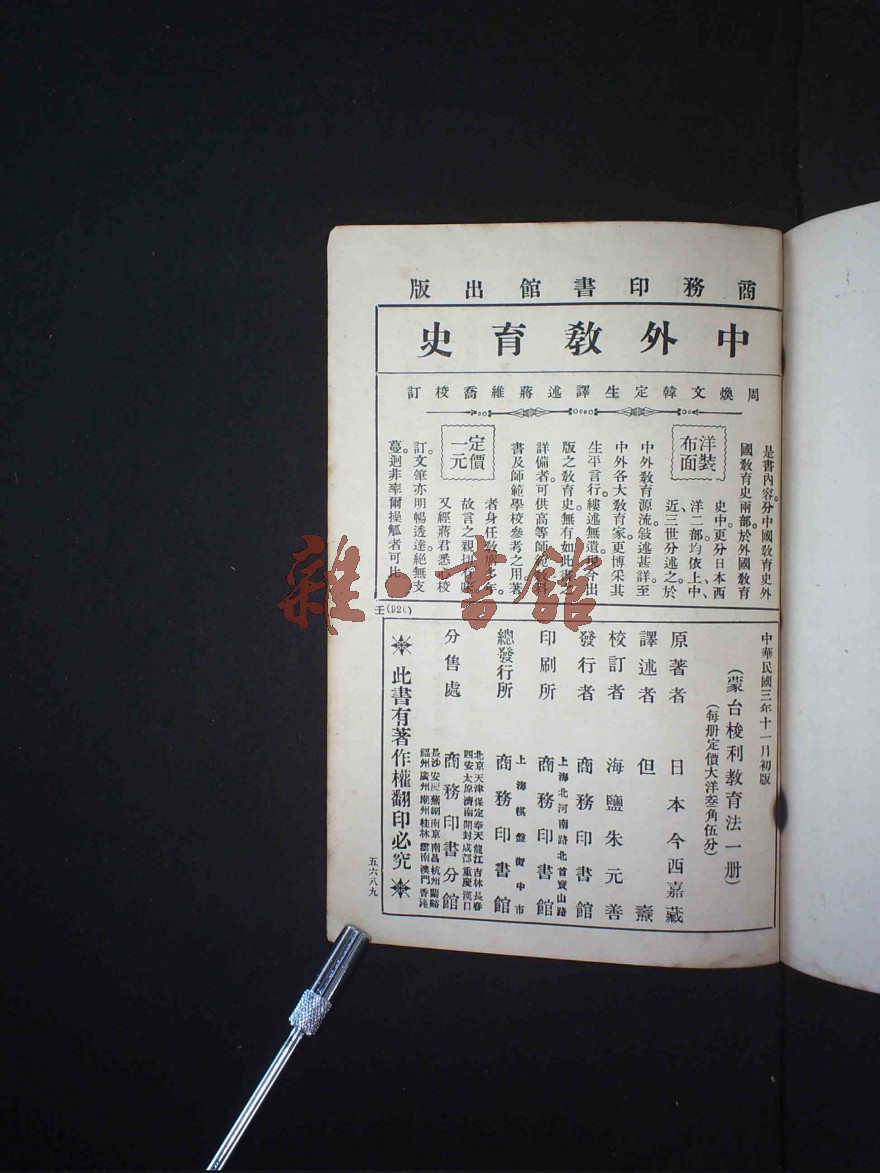 商務印書館出版
中外教育史
周煥文韓定生譯述蔣維喬校訂
洋裝布面
定價一元
是書內容。分中國教育史外
國教育史兩部。於外國教育
史中更分日本西
洋二部。均依上、中、
近、三世分述之。於
中外教育源流。敍述甚詳。至
中外各大教育家。更博采其
生平言行。縷述無遺。現今出
版之教育史。無有如此書之
詳備者。可供高等師範教科
書及師範學校參考之用。著
者身任教席多年。
故言之親切有味。
又經蔣君悉心校
訂。文筆亦明暢透達。絕無支
蔓。迥非率爾操觚者可比。
壬
中華民國三年十一月初版
(蒙台梭利教育法一册)
(每册定價大洋叁角伍分)
原著者 日本今西嘉藏
譯述者 但燾
校訂者 海鹽朱元善
發行者 商務印書館
上海北河南路北首寶山路
印刷所 商務印書館
上海棋盤街中市
總發行所 商務印書館
北京天津保定奉天龍江吉林長春
西安太原濟南開封成都重慶漢口
分售處 商務印書分館
長沙安慶蕪湖南京南昌杭州蘭谿
福州廣州潮州桂林雲南澳門香港
此書有著作權翻印必究
五六八九
雜·書館